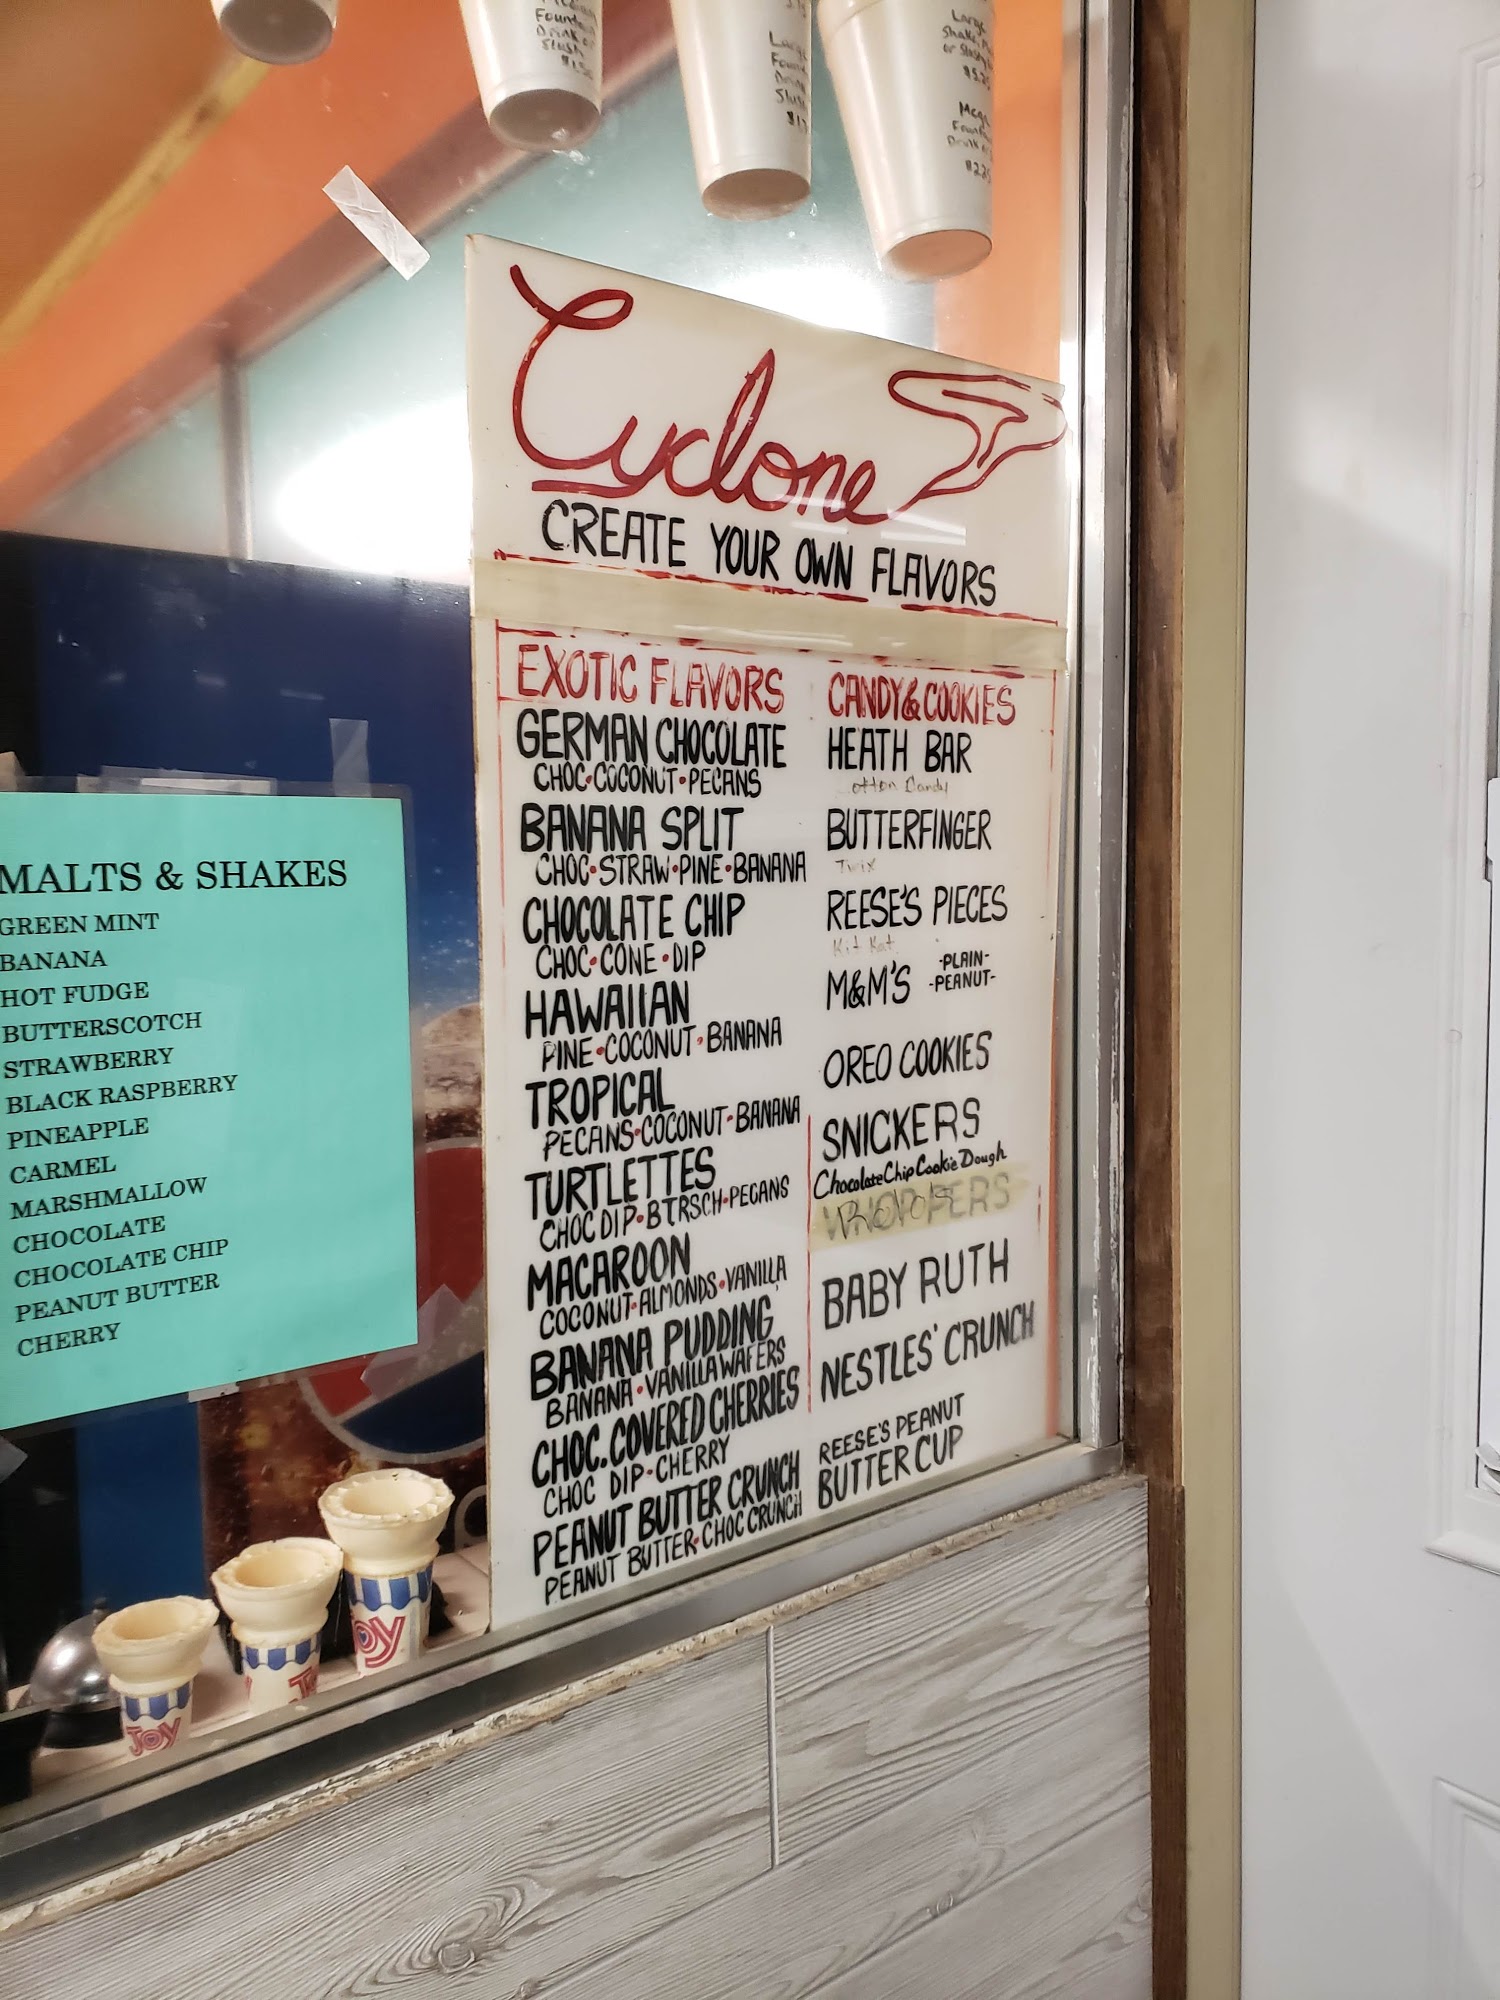 Fountain
Drink or
Slush
$1.50
Large
Drink
Slush
Large
Shake
or Slush
$5.25
Mega
Drink or
$2.25
Cyclone
CREATE YOUR OWN FLAVORS
EXOTIC FLAVORS
GERMAN CHOCOLATE
CHOC•COCONUT•PECANS
BANANA SPLIT
CHOC•STRAW•PINE•BANANA
CHOCOLATE CHIP
CHOC•CONE•DIP
HAWAIIAN
PINE•COCONUT•BANANA
TROPICAL
PECANS•COCONUT•BANANA
TURTLETTES
CHOC DIP•BTRSCH•PECANS
MACAROON
COCONUT•ALMONDS•VANILLA
BANANA PUDDING
BANANA•VANILLA WAFERS
CHOC. COVERED CHERRIES
CHOC DIP•CHERRY
PEANUT BUTTER CRUNCH
PEANUT BUTTER•CHOC CRUNCH
CANDY & COOKIES
HEATH BAR
otton Candy
BUTTERFINGER
Twix
REESE'S PIECES
Kit Kat
M&M'S -PLAIN-
-PEANUT-
OREO COOKIES
SNICKERS
Chocolate Chip Cookie Dough
WHOPPERS
Rolo's
BABY RUTH
NESTLES' CRUNCH
REESE'S PEANUT
BUTTER CUP
MALTS & SHAKES
GREEN MINT
BANANA
HOT FUDGE
BUTTERSCOTCH
STRAWBERRY
BLACK RASPBERRY
PINEAPPLE
CARMEL
MARSHMALLOW
CHOCOLATE
CHOCOLATE CHIP
PEANUT BUTTER
CHERRY
JOY